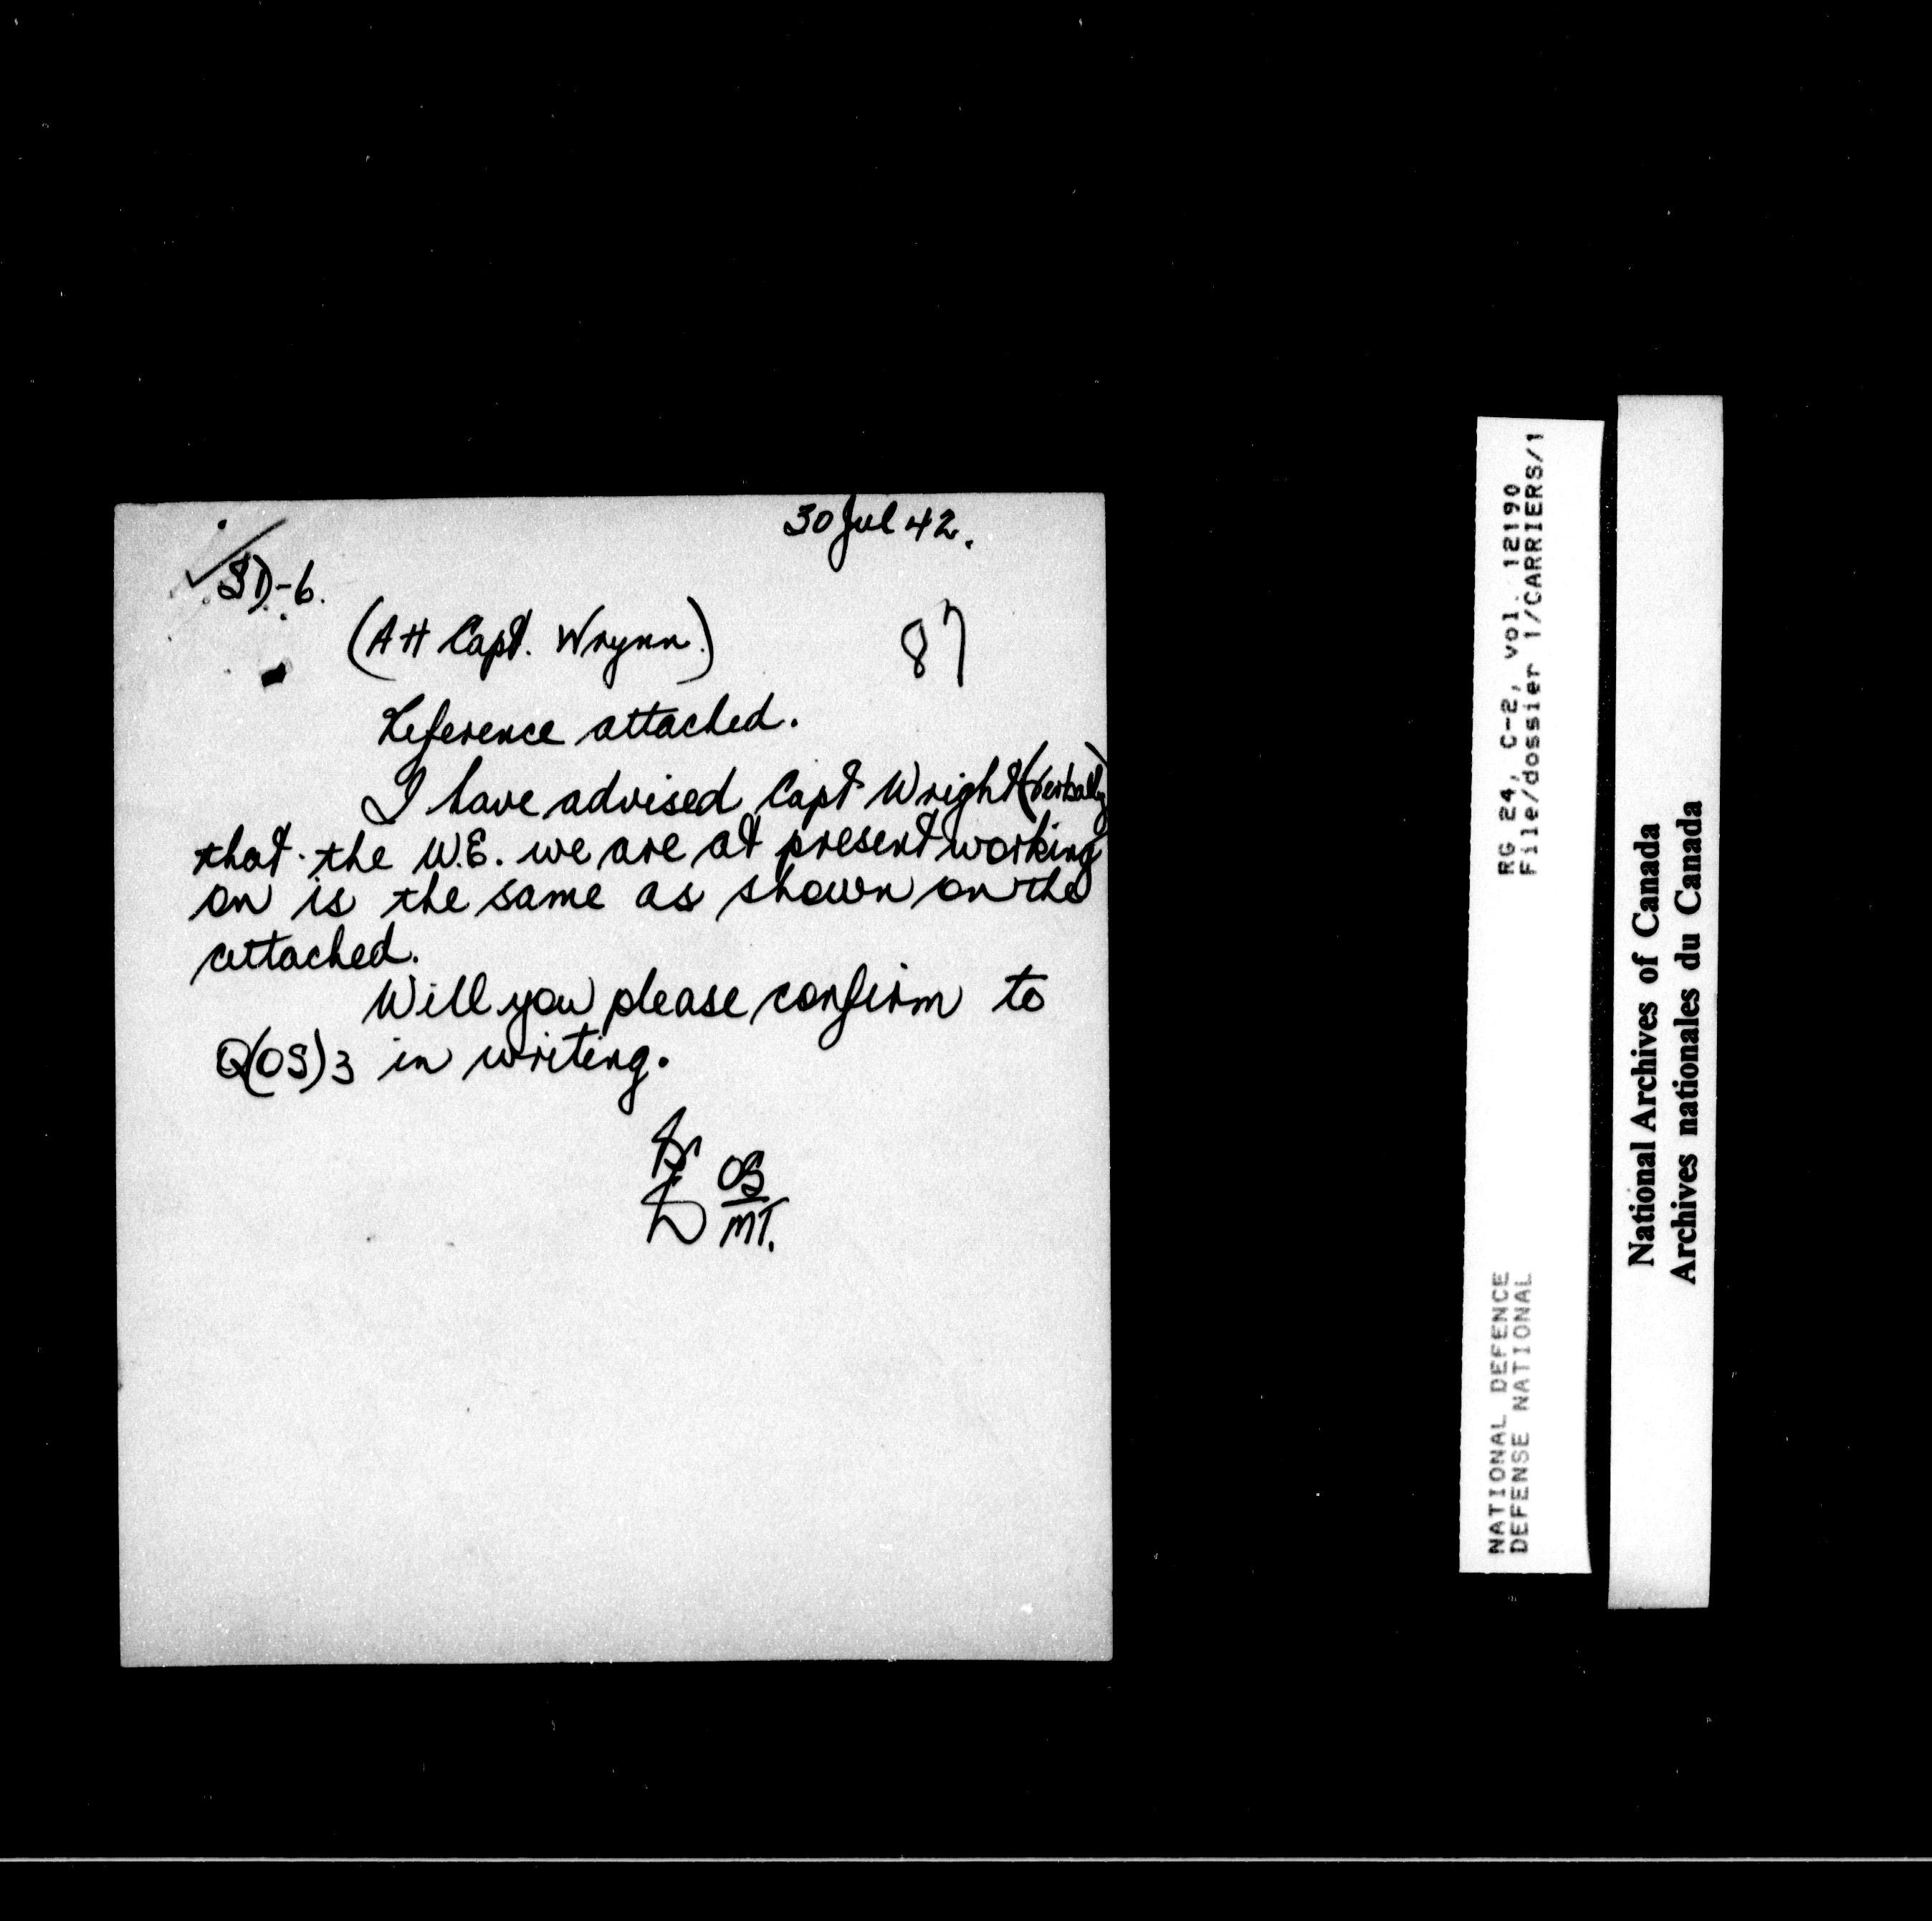 30 Jul 42.
SD-6.
(Att Capt. Wrynn.)
87
Reference attached.
I have advised Capt Wright (verbally)
that the W.E. we are at present working
on is the same as shown on the
attached.
Will you please confirm to
Q(OS)3 in writing.
OS
MT.
RG 24, C-2, vol. 12190
File/dossier 1/CARRIERS/1
NATIONAL DEFENCE
DEFENSE NATIONAL
National Archives of Canada
Archives nationales du Canada